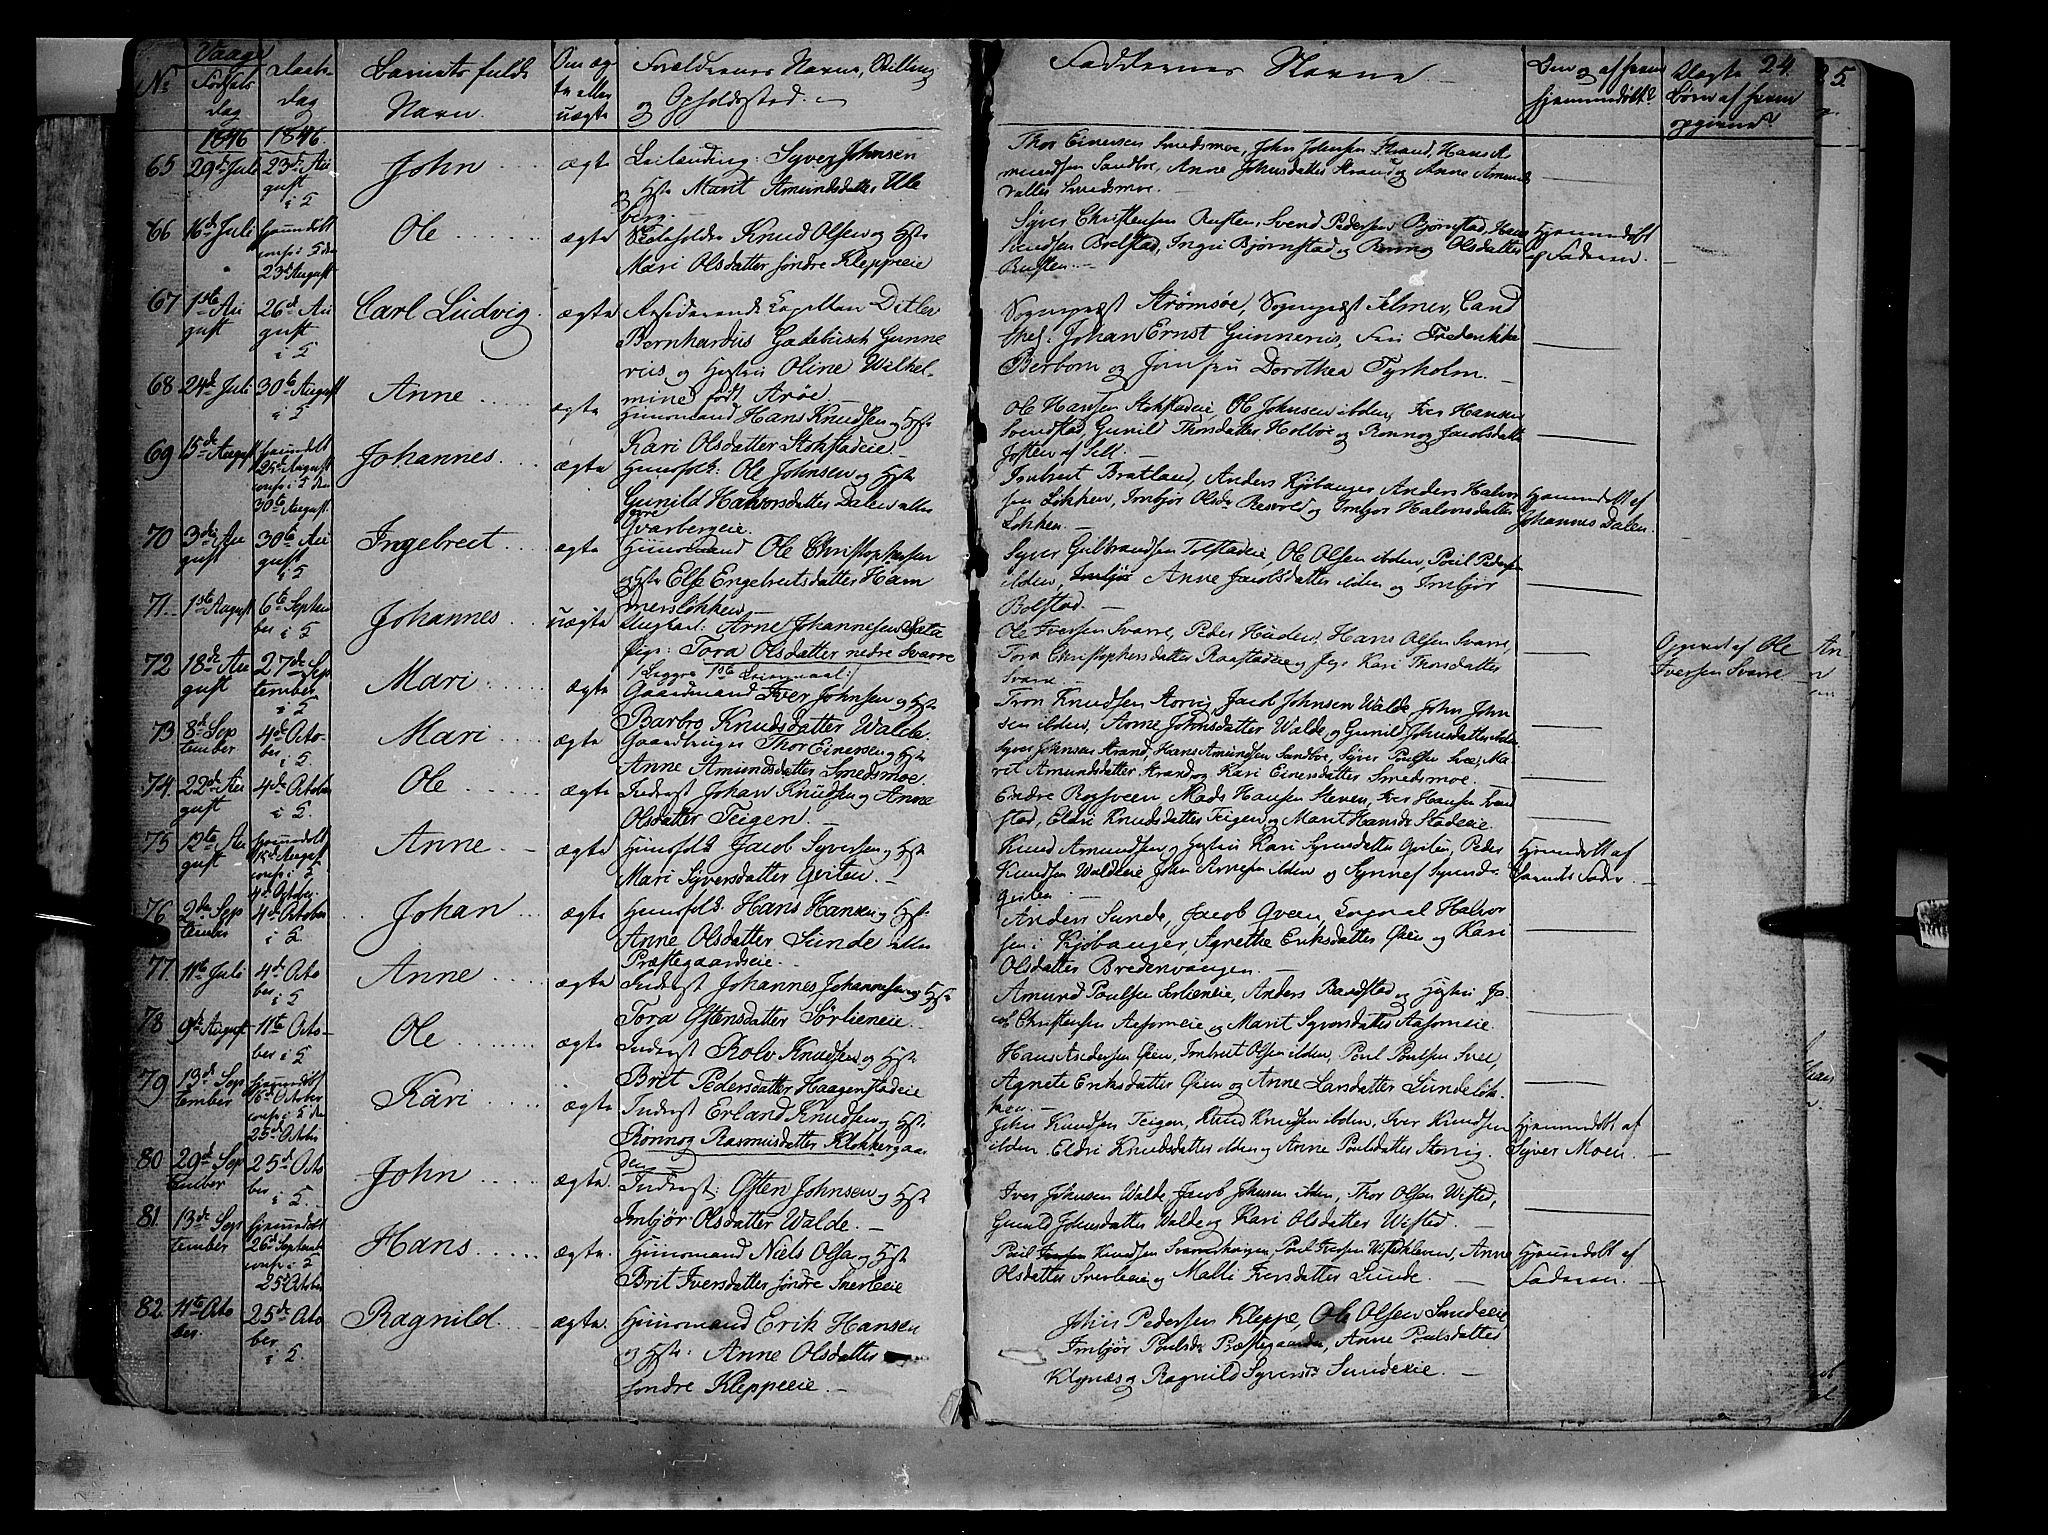 Vaage
No
Fødsels
dag
Daabs
dag
Barnets fulde
Navn.
Om æg
te eller
uægte
Forældrenes Navne, Stilling
og Opholdssted.
Faddernes Navne
hjemmedøbt?
Uægte
Børn af hvem
opgivne?
24.
1846 1846.
65 29de Juli 23de Au
gust
i 5
John
ægte
Leilænding Syver Johnsen
og Hst Marit Amundsdatter Ule
berg.
Thor Einersen Smedsmoe, John Johnsen Strand, Hans A
mundsen Sandboe, Anne Johnsdatter Strand og Anne Amunds
datter Smedsmoe.
66 16de Juli Hjemmedøbt
conf: i 5 den
23de August
Ole
ægte
Skoleholder Knud Olsen og Hst
Mari Olsdatter søndre Kleppeeie
Syver Christensen Rusten, Svend Pedersen Bjørnstad, Hans
Svendsen Bolstad, Ingri Bjørnstad og Rønnog Olsdatter
Rusten.
Hjemmedøbt
af Faderen.
67 1ste Au
gust
26de Au
gust
i 5
Carl Ludvig
ægte
Residerende Capellan Ditlev
Bernhardus Gadebusch Gunne
rius og Hustru Oline Wilhel-
mine født Arøe.
Sognepræst Strømsøe, Sognepræst Selmer, Cand
theol: Johan Ernst Gunnerus, Fru Frederikke
Berbom og Jomfru Dorothea Tyrholm.
68 24de Juli 30te August
i 5
Anne
ægte
Huusmand Hans Knudsen og Hst
Kari Olsdatter Stokstadeie
Ole Hansen Stokstadeie, Ole Johnsen ibden, Iver Hansen
Svendstad, Gunild Thorsdatter Holboe og Rønnog Jacobsdatter
Joften af Sell.
69 15de August Hjemmedøbt
25de August
conf: i 5 den
30te August
Johannes
ægte
Huusfolk: Ole Johnsen og Hst
Gunild Halvorsdatter Dalen eller
øvre
Qvarbergeie.
Imbret Bratland, Anders Kjøbanger, Anders Halvor
sen Løkken, Imbjør Olsdr Resvold og Imbjør Halvorsdatter
Løkken.
Hjemmedøbt af
Johannes Dalen.
70 3die Au
gust
30te Au
gust
i 5
Ingebret
ægte
Huusmand Ole Christophersen
og Hst Else Engebretsdatter Ham
mersløkken
Syver Guldbrandsen Tolstadeie, Ole Olsen ibden, Poul Pedersen
ibden, Imbjør Anne Jacobsdatter ibden og Imbjør
Bolstad.
71 1ste August 6te Septem
ber i 5
Johannes
uægte
Ungkarl: Arne Johannesen Sæta
Pige: Tora Olsdatter nedre Svarre
Begges 1ste Leiermaal
Ole Iversen Svarre, Peder Huden, Hans Olsen Svarre,
Tora Christophersdatter Raastadeie og Pige Kari Thorsdatter
Svarre
Opgivet af Ole
Iversen Svarre
72 18de Au
gust
27de Sep
tember
i 5
Mari
ægte
Gaardmand Iver Johnsen og Hst
Barbro Knudsdatter Walde.
Tron Knudsen Storvig, Jacob Johnsen Walde, John John
sen ibden, Anne Johnsdatter Walde og Gunild Johnsdatter ibden
73 8de Sep
tember
4de Octo
ber
i 5
Mari
ægte
Gaardbruger Thor Einersen og Hst
Anne Amundsdatter Smedsmoe.
Syver Johnsen Strand, Hans Amundsen Sandboe, Syver Poulsen Svee, Ma
rit Amundsdatter Strand og Kari Einersdatter Smedsmoe.
74 22de Au
gust
4de October
i 5
Ole
ægte
Inderst Johan Knudsen og Anne
Olsdatter Teigen.
Endre Rogsveen, Mads Hansen Steven, Iver Hansen Svend
stad, Eldri Knudsdatter Teigen og Marit Hansdr Stadeeie.
75 12te Au
gust
Hjemmedøbt
18de August
conf: i 5
4de October
Anne
ægte
Huusfolk Jacob Syversen og Hst
Mari Syversdatter Qviten.
Knud Amundsen og Hustru Kari Syversdatter Qviten, Peder
Knudsen Waldeeie John Arnesen ibden og Synnef Syversd-
Qviten
Hjemmedøbt af
Barnets Fader.
76 2den Sep
tember
4de October
i 5
Johan
ægte
Huusfolk. Hans Hansen og Hst:
Anne Olsdatter Sunde eller
Præstegaardseie.
Anders Sunde, Jacob Qveen, Corporal Halvor
sen i Kjøbanger, Agnethe Eriksdatter Øien og Kari
Olsdatter Bredenvangen.
77. 11te Juli 4de Octo
ber
i 5
Anne
ægte
Inderst Johannes Johannesen og Hst
Tora Ostensdatter Sørlieneie.
Amund Poulsen Sørlieneie, Anders Randstad og Hustru, Ja
cob Christensen Aasorneie og Marit Syversdatter Aasorneie.
78 9de August 11te Octo-
ber i 5
Ole
ægte
Inderst Rolv Knudsen og Hst
Brit Pedersdatter Haagenstadeie
Hans Andersen Øien, Imbret Olsen ibden, Poul Poulsen Svee,
Agnete Eriksdatter Øien og Anne Larsdatter Sundeløk-
ken.
79 13de Sep
tember
Hjemmedøbt
16de October
conf: i 5 den
25de October
Kari
ægte
Inderst Erland Knudsen og Hst:
Rønnog Rasmusdatter Klokkergaar
den
John Knudsen Teigen, Knud Knudsen ibden, Iver Knudsen
ibden. Eldri Knudsdatter ibden og Anne Poulsdatter Storvig.
Hjemmedøbt af
Syver Moen.
80 29de Sep
tember
25de Octo
ber
i 5
John
ægte.
Inderst: Osten Johnsen og Hst
Imbjør Olsdatter Walde.
Iver Johnsen Walde, Jacob Johnsen ibden, Thor Olsen Wisted,
Gunild Johnsdatter Walde og Kari Olsdatter Wisted.
81. 13de Sep
tember
Hjemmedøbt
26de Septemb
conf: i 5
25de October
Hans
ægte.
Huusmand Niels Olsen og Hst
Brit Iversdatter søndre Sverleeie
Poul Iversen Knudsen Svarrehaugen, Poul Iversen Wistekleven, Anne
Olsdatter Sverleeie og Malli Iversdatter Sunde.
Hjemmedøbt af
Faderen.
82 11te Octo
ber.
25de Octo
ber.
i 5.
Ragnild
ægte.
Huusmand Erik Hansen
og Hst: Anne Olsdatter
søndre Kleppeeie.
John Pedersen Kleppe, Ole Olsen Sundeeie
Imbjør Poulsdr Præstegaarden, Anne Poulsdatter
Klynæs og Ragnild Syversdr Sundeeie.